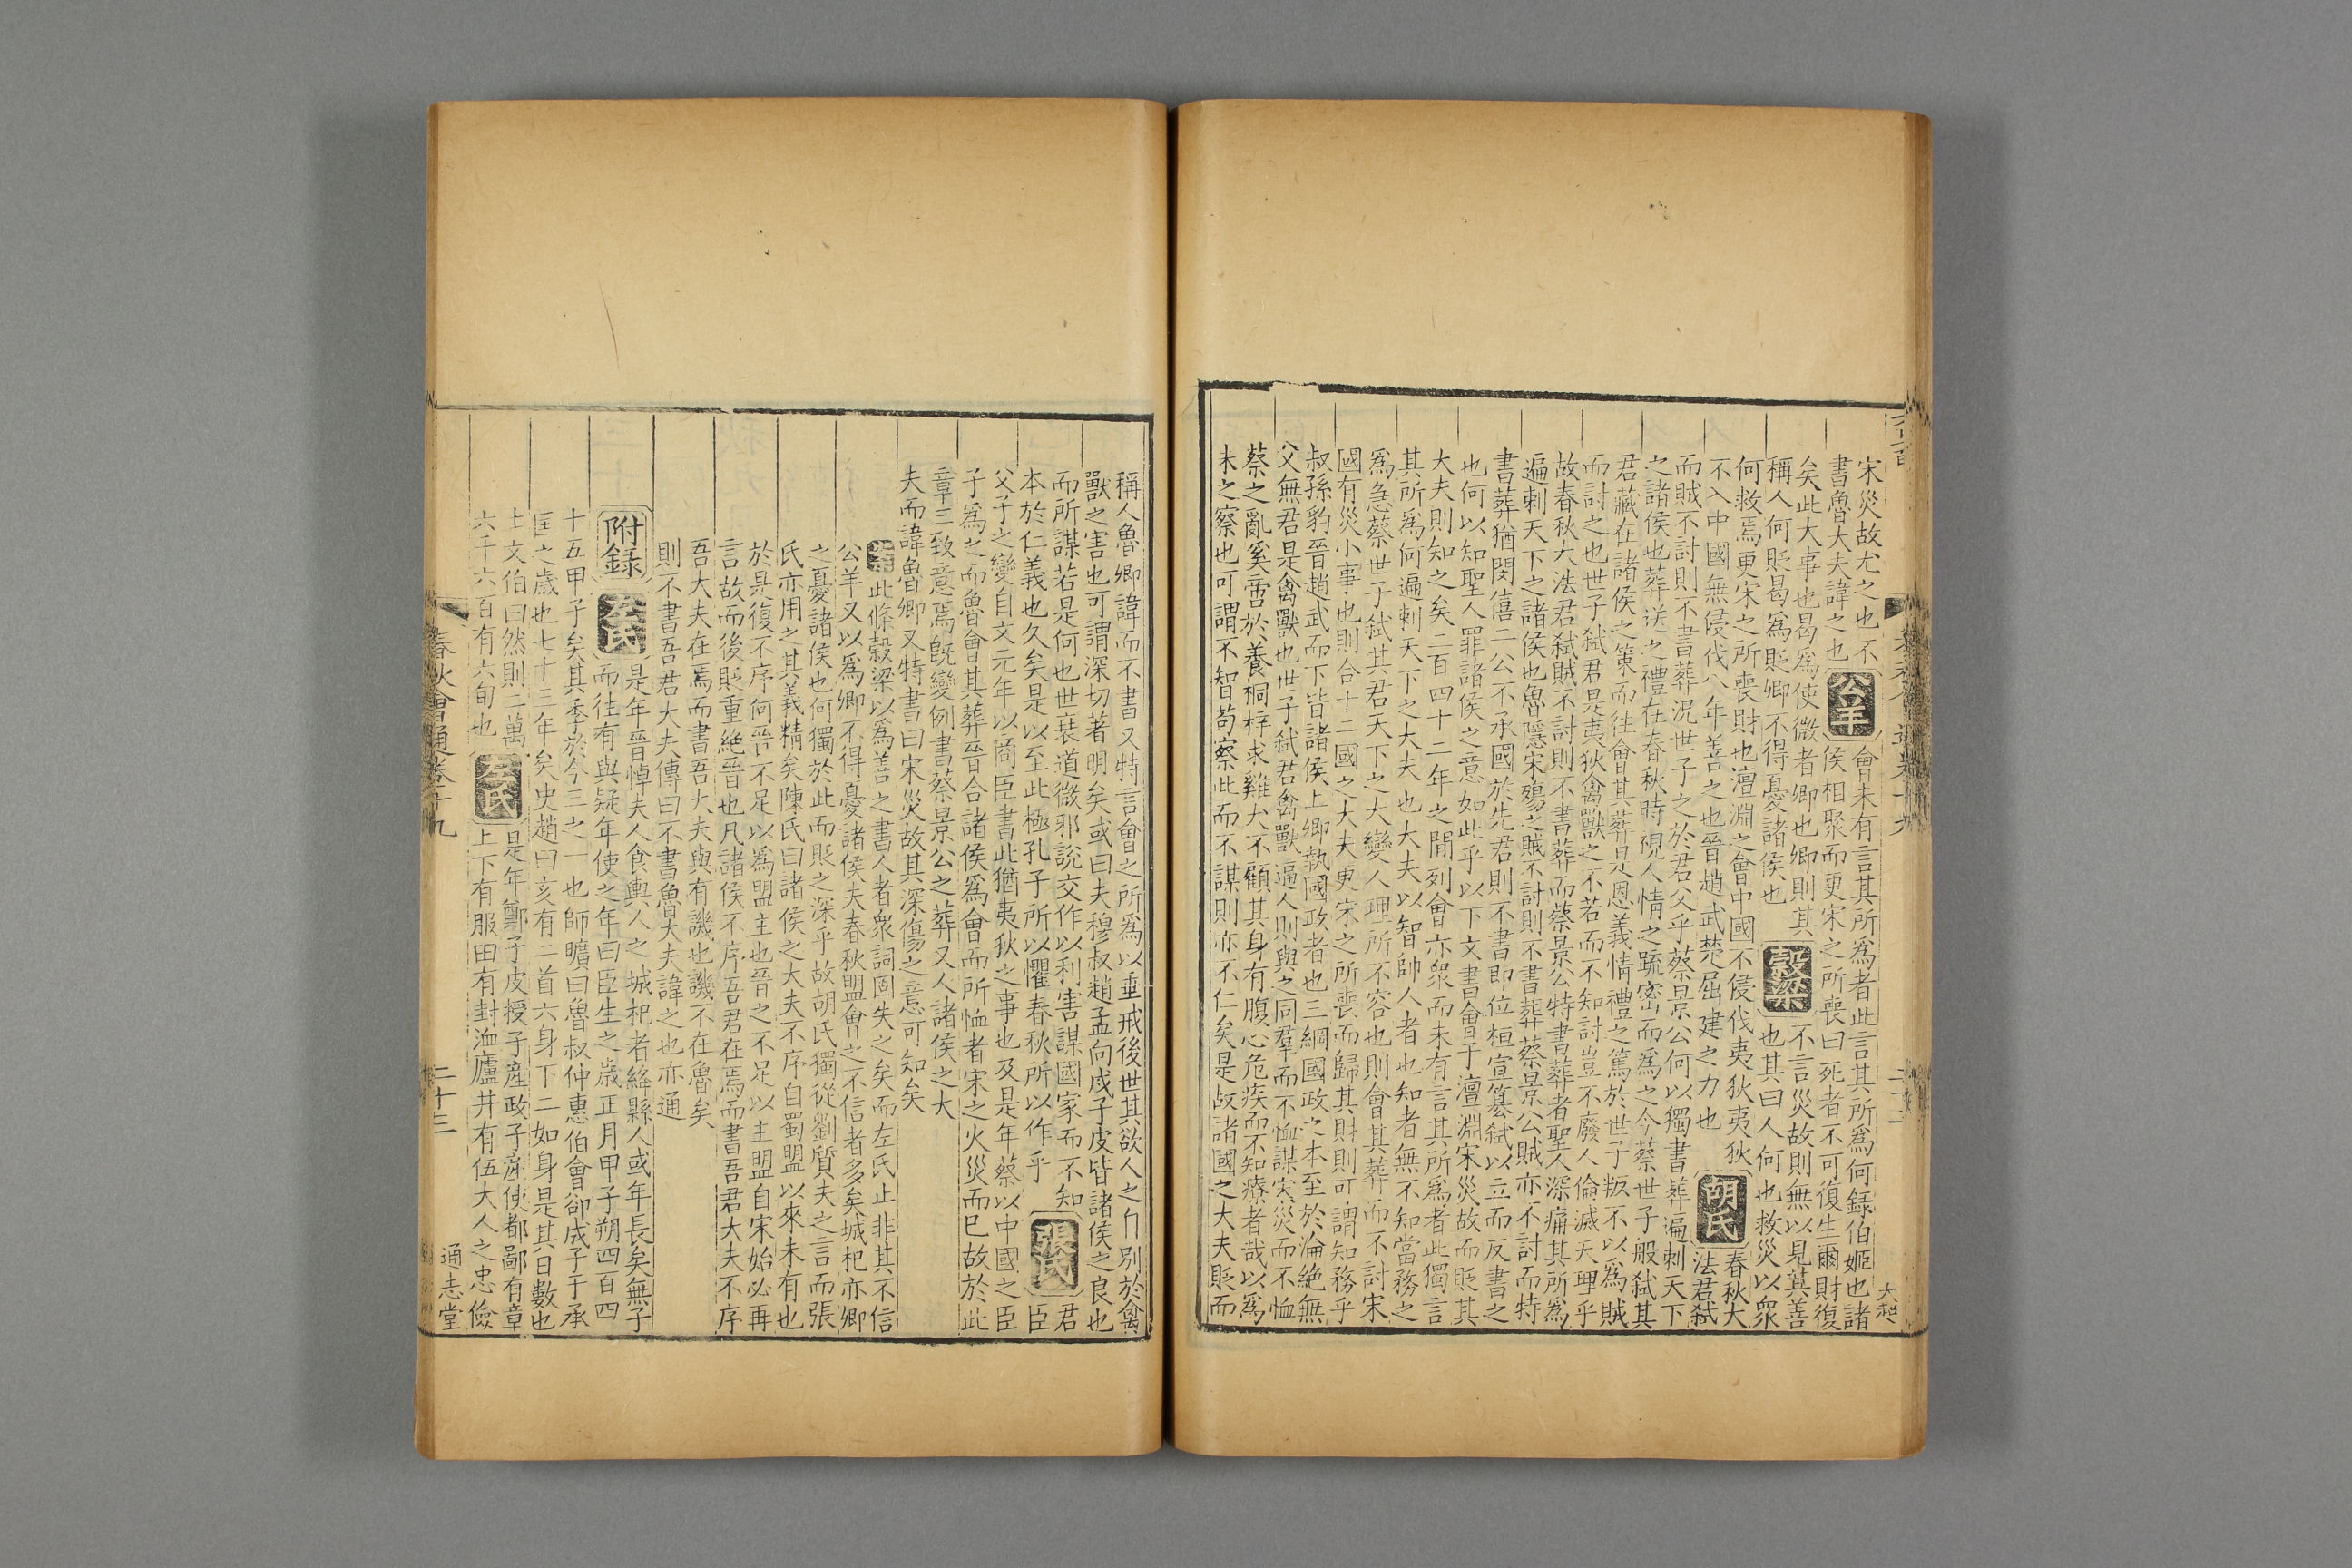 宋災故尤之也不
書魯大夫諱之也
公羊
會未有言其所爲者此言其所爲何録伯姬也諸
侯相聚而更宋之所喪曰死者不可復生爾財復
矣此大事也曷爲使微者卿也卿則其
稱人何貶曷爲貶卿不得憂諸侯也
穀梁
不言災故則無以見其善
也其曰人何也救災以衆
何救焉更宋之所喪財也澶淵之會中國不侵伐夷狄夷狄
不入中國無侵伐八年善之也晉趙武楚屈建之力也
胡氏
春秋大
法君弑
而賊不討則不書葬況世子之於君父乎蔡景公何以獨書葬遍刺天下
之諸侯也葬送之禮在春秋時視人情之疏密而爲之今蔡世子般弑其
君藏在諸侯之策而往會其葬是恩義情禮之篤於世子叛不以爲賊
而討之也世子弑君是夷狄禽獸之不若而不知討豈不廢人倫滅天理乎
故春秋大法君弑賊不討則不書葬而蔡景公特書葬者聖人深痛其所爲
遍刺天下之諸侯也魯隱宋殤之賊不討則不書葬蔡景公賊亦不討而特
書葬猶閔僖二公不承國於先君則不書即位桓宣簒弑以立而反書之
也何以知聖人罪諸侯之意如此乎以下文書會于澶淵宋災故而貶其
大夫則知之矣二百四十二年之閒列會亦衆而未有言其所爲者此獨言
其所爲何遍刺天下之大夫也大夫以智帥人者也知者無不知當務之
爲急蔡世子弑其君天下之大變人理所不容也則會其葬而不討宋
國有災小事也則合十二國之大夫更宋之所喪而歸其財則可謂知務乎
叔孫豹晉趙武而下皆諸侯上卿執國政者也三綱國政之本至於淪絶無
父無君是禽獸也世子弑君禽獸遍人則與之同羣而不恤謀宋災而不恤
蔡之亂奚啻於養桐梓求雞犬不顧其身有腹心危疾而不知療者哉以爲
未之察也可謂不智苟察此而不謀則亦不仁矣是故諸國之大夫貶而
稱人魯卿諱而不書又特言會之所爲以垂戒後世其欲人之自別於禽
獸之害也可謂深切著明矣或曰夫穆叔趙孟向戌子皮皆諸侯之良也
而所謀若是何也世衰道微邪説交作以利害謀國家而不知
本於仁義也久矣是以至此極孔子所以懼春秋所以作乎
張氏
君
臣
父子之變自文元年以商臣書此猶夷狄之事也及是年蔡以中國之臣
子爲之而魯會其葬晉合諸侯爲會而所恤者宋之火災而已故於此
章三致意焉旣變例書蔡景公之葬又人諸侯之大
夫而諱魯卿又特書曰宋災故其深傷之意可知矣
此條穀梁以爲善之書人者衆詞固失之矣而左氏止非其不信
公羊又以爲卿不得憂諸侯夫春秋盟會之不信者多矣城杞亦卿
之憂諸侯也何獨於此而貶之深乎故胡氏獨從劉質夫之言而張
氏亦用之其義精矣陳氏曰諸侯之大夫不序自蜀盟以來未有也
於是復不序何晉不足以爲盟主也晉之不足以主盟自宋始必再
言故而後貶重絶晉也凡諸侯不序吾君在焉而書吾君大夫不序
吾大夫在焉而書吾大夫與有譏也譏不在魯矣
則不書吾君大夫傳曰不書魯大夫諱之也亦通
附録
左氏
是年晉悼夫人食輿人之城杞者絳縣人或年長矣無子
而往有與疑年使之年曰臣生之歲正月甲子朔四百四
十五甲子矣其季於今三之一也師曠曰魯叔仲惠伯會郤成子于承
匡之歲也七十三年矣史趙曰亥有二首六身下二如身是其日數也
士文伯曰然則二萬
六千六百有六旬也
左氏
是年鄭子皮授子產政子產使都鄙有章
上下有服田有封洫廬井有伍大人之忠儉
春秋會通卷十九
二十三
通志堂